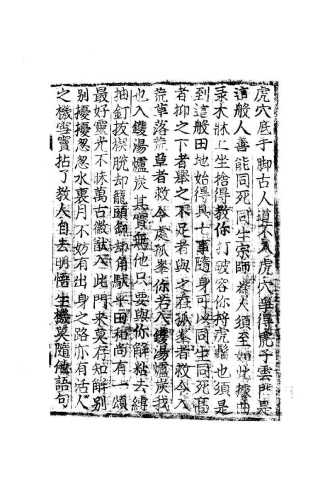 虎穴底手脚古人道不入虎穴爭得虎子雲門是
這般人善能同死同生宗師爲人須至如此據曲
彔木牀上坐捨得教你打破容你捋虎鬚也須是
到這般田地始得具七事隨身可以同生同死高
者抑之下者舉之不足者與之在孤峯者救令入
荒草落荒草者救令處孤峯你若入鑊湯爐炭我
也入鑊湯爐炭其實無他只要與你解粘去縛
抽釘拔楔脫却籠頭卸却角馱平田和尚有一頌
最好靈光不昧萬古徽猷入此門來莫存知解別
別擾擾忽忽水裏月不妨有出身之路亦有活人
之機雪竇拈了教人自去明悟生機莫隨他語句